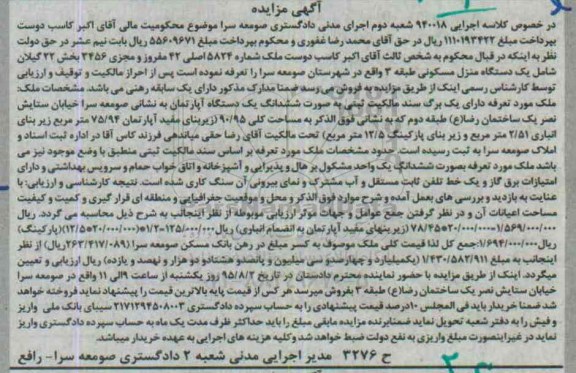 آگهی مزایده
در خصوص کلاسه اجرایی ۹۴۰۰۱۸ شعبه دوم اجرای مدنی دادگستری صومعه سرا موضوع محکومیت مالی آقای اکبر کاسب دوست
بپرداخت مبلغ ۱۱۱۰۱۹۳۴۲۲ ریال در حق آقای محمد رضا غفوری و محکوم بپرداخت مبلغ ۵۵۶۰۹۶۷۱ ریال بابت نیم عشر در حق دولت
نظر به اینکه در قبال محکوم به شخص ثالث آقای اکبر کاسب دوست ملک شماره ۵۸۲۴ اصلی ۴۲ مفروز و مجزی ۳۴۵۶ بخش ۲۲ گیلان
شامل یک دستگاه منزل مسکونی طبقه ۳ واقع در شهرستان صومعه سرا را تعرفه نموده است پس از احراز مالکیت و توقیف و ارزیابی
توسط کارشناس رسمی اینک از طریق مزایده به فروش می رسد ضمنا مدارک مذکور دارای یک سابقه رهنی می باشد. مشخصات ملک:
ملک مورد تعرفه دارای یک برگ سند مالکیت ثبتی به صورت ششدانگ یک دستگاه آپارتمان به نشانی صومعه سرا خیابان ستایش
نصر یک ساختمان رضا(ع) طبقه دوم که به نشانی فوق الذکر به مساحت کلی ۹۰/۹۵ (زیربنای مفید آپارتمان ۷۵/۹۴ متر مربع زیر بنای
انباری ۲/۵۱ متر مربع و زیر بنای پارکینگ ۱۲/۵ متر مربع) تحت مالکیت آقای رضا حقی میاندهی فرزند کاس آقا در اداره ثبت اسناد و
املاک صومعه سرا به ثبت رسیده است. حدود مشخصات ملک مورد تعرفه بر اساس سند مالکیت ثبتی منطبق با وضع موجود نیز می
باشد ملک مورد تعرفه بصورت ششدانگ یک واحد مشکول بر هال و پذیرایی و آشپزخانه و اتاق خواب حمام و سرویس بهداشتی و دارای
امتیازات برق گاز و یک خط تلفن ثابت مستقل و آب مشترک و نمای بیرونی آن سنگ کاری شده است. نتیجه کارشناسی و ارزیابی: با
عنایت به بازدید و بررسی های بعمل آمده و شرح موارد فوق الذکر و محل و موقعیت جغرافیایی و منطقه ای قرار گیری و کمیت و کیفیت
مساحت اعیانات آن و در نظر گرفتن جمع عوامل و جهات موثر ارزیابی مربوطه از نظر اینجانب به شرح ذیل محاسبه می گردد. ریال
۱/۵۶۹/۰۰۰/۰۰۰=۲۰/۰۰۰/۰۰۰×۷۸/۴۵ (زیربنای مفید آپارتمان به انضمام انباری) ریال ۱۲۵/۰۰۰/۰۰۰=۱/۲×(۲۰/۰۰۰/۰۰۰×۱۲/۵)(پارکینگ)
ریال ۱/۶۹۴/۰۰۰/۰۰۰:جمع کل لذا قیمت کلی ملک موصوف به کسر مبلغ در رهن بانک مسکن صومعه سرا (۲۶۳/۴۱۷/۰۸۹ریال) از نظر
اینجانب به مبلغ ۱/۴۳۰/۵۸۲/۹۱۱ (یکمیلیارد و چهارصدو سی میلیون و پانصدو هشتادو دو هزار و نهصد و یازده) ریال ارزیابی و تعیین
میگردد. اینک از طریق مزایده با حضور نماینده محترم دادستان در تاریخ ۹۵/۸/۲ روز یکشنبه از ساعت ۹الی ۱۱ واقع در صومعه سرا
خیابان ستایش نصر یک ساختمان رضا(ع) طبقه ۳ بفروش میرسد هر کس از قیمت پایه بالاترین قیمت را پیشنهاد نماید فروخته خواهد
شد ضمنا خریدار باید فی المجلس ۱۰درصد قیمت پیشنهادی را به حساب سپرده دادگستری ۲۱۷۱۲۹۴۵۰۸۰۰۳ سیبای بانک ملی واریز
و فیش را به دفتر شعبه تحویل نماید ضمنابرنده مزایده مابقی مبلغ را باید حداکثر ظرف مدت یک ماه به حساب سپرده دادگستری واریز
نماید در غیراینصورت مبلغ واریزی به نفع دولت ضبط خواهد شد وکلیه هزینه های اجرایی به عهده خریدار میباشد.
ح ۳۲۷۶ مدیر اجرایی مدنی شعبه ۲ دادگستری صومعه سرا- رافع